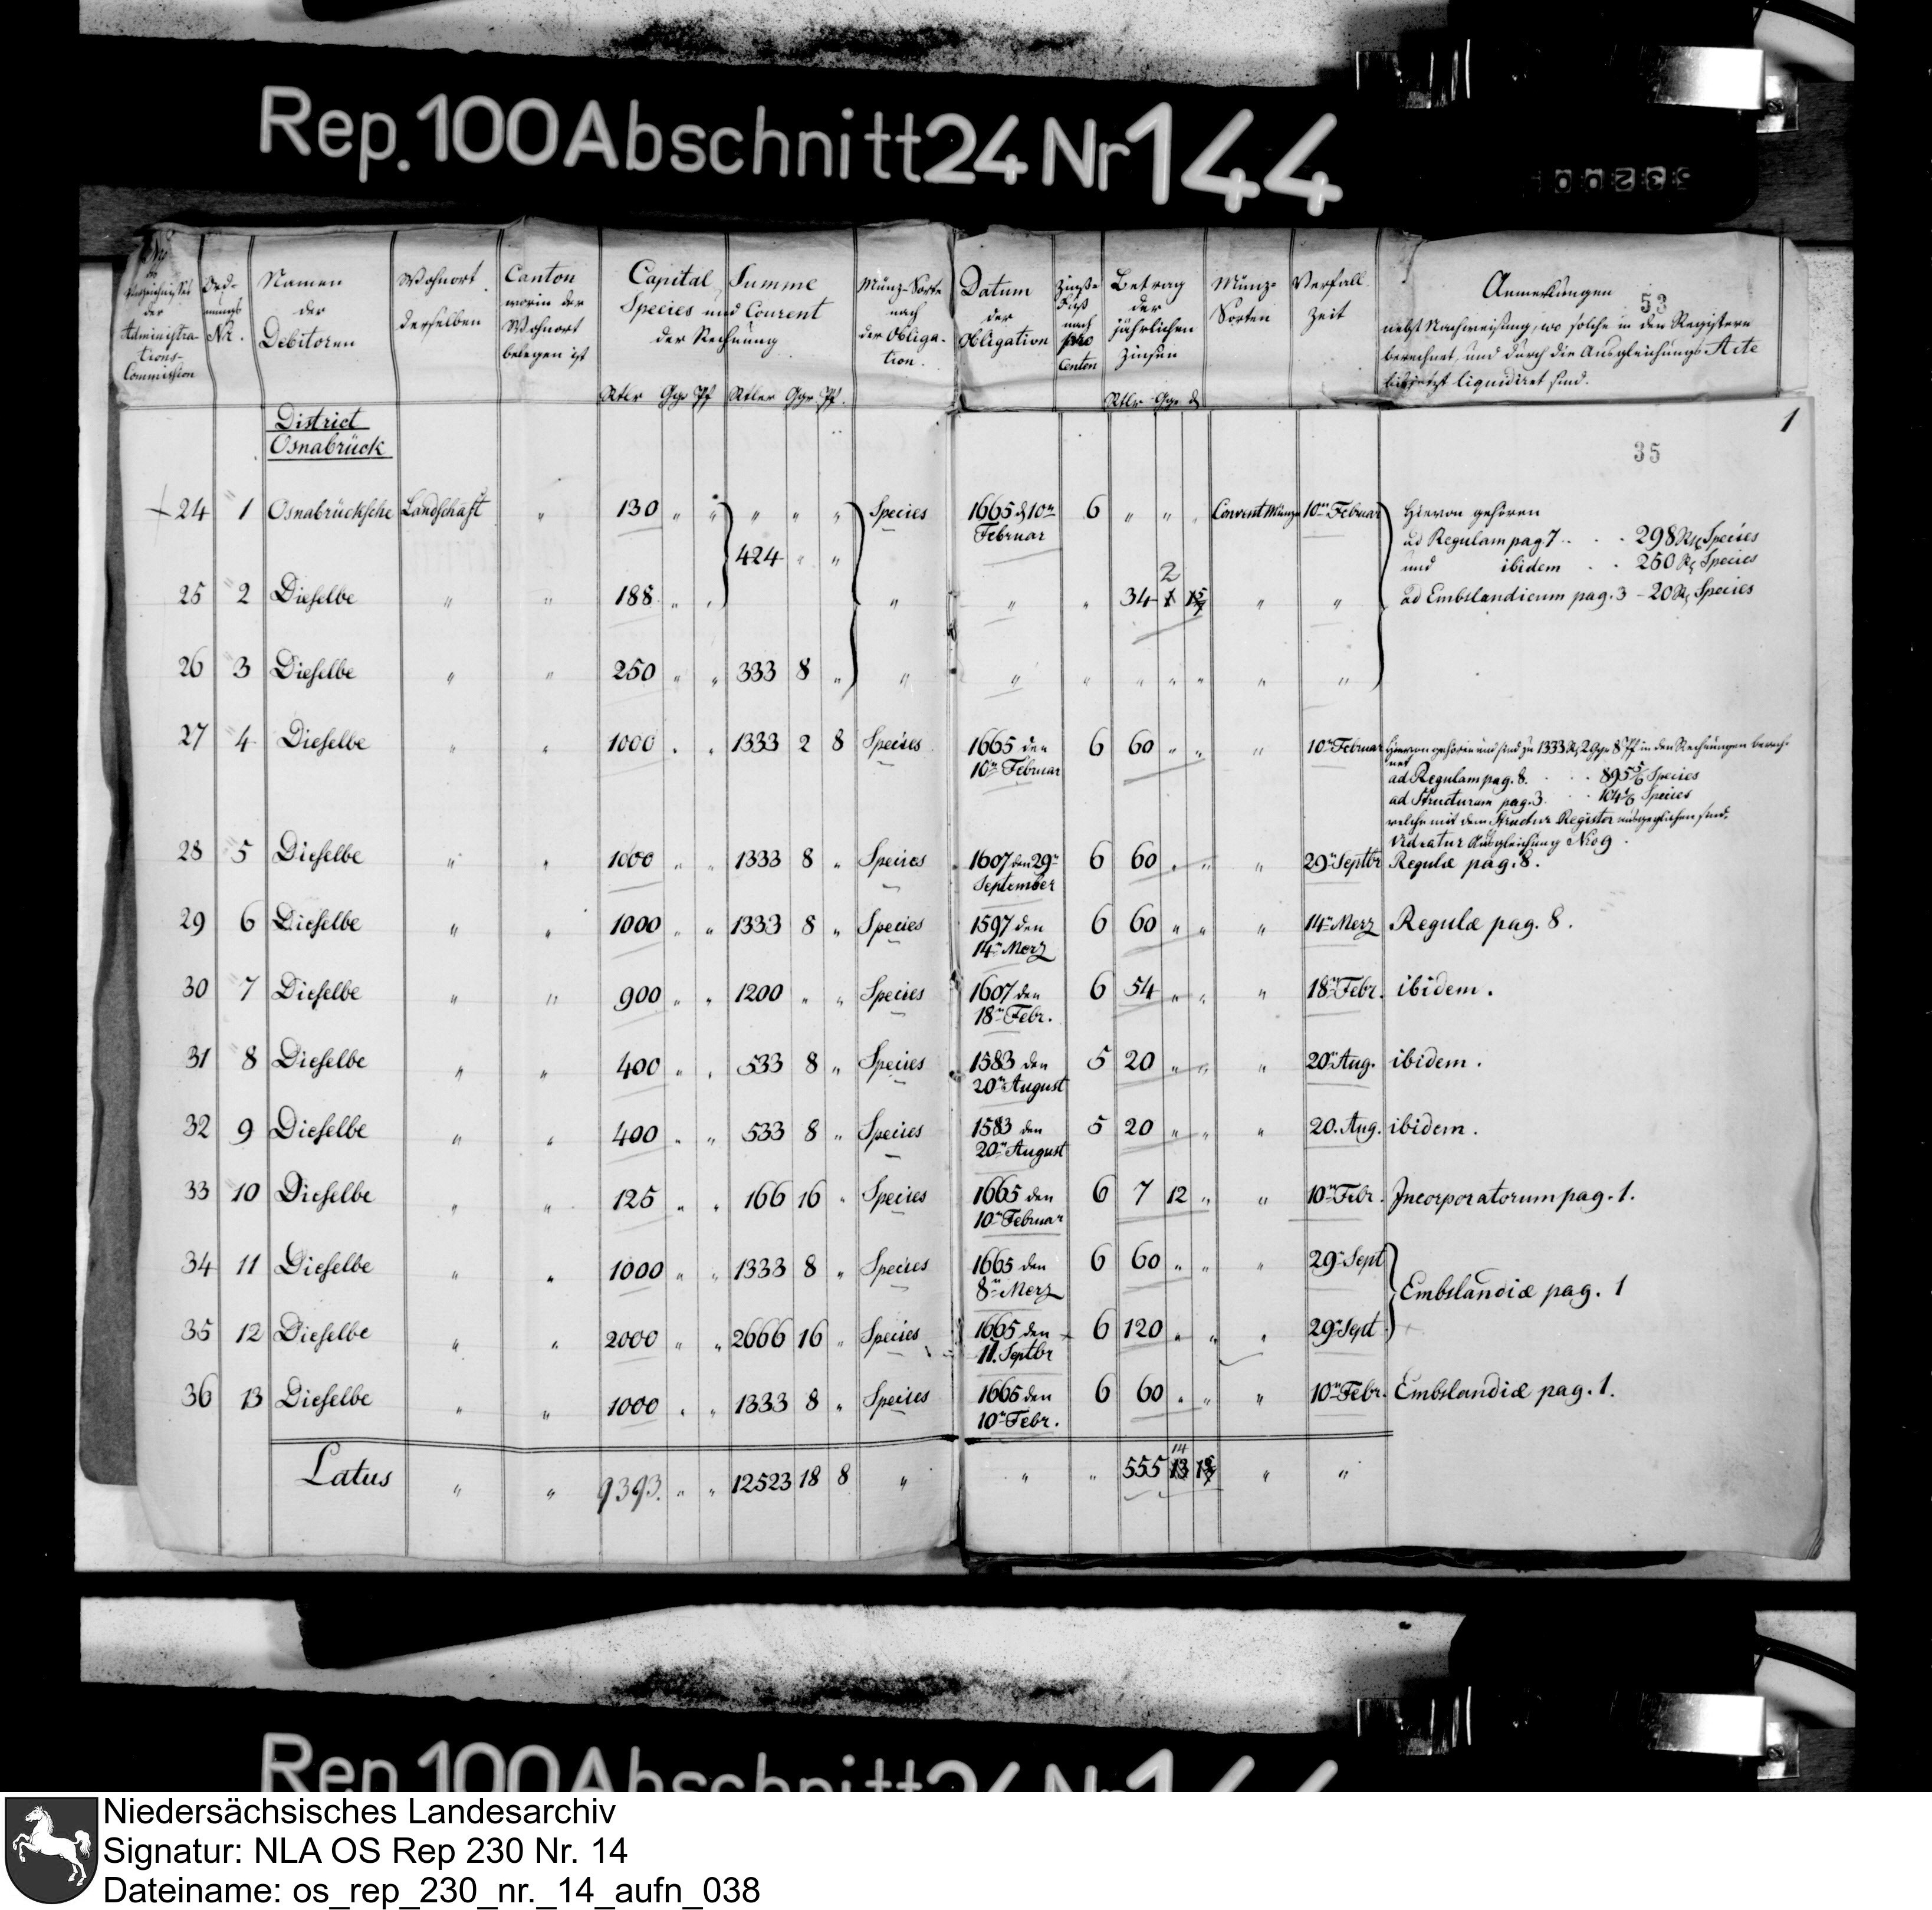 Rep. 100 Abschnitt 24 Nr 144
Nr
der
Administra-
tions-
Commission
Ord-
nungs
Nr.
Namen
der
Debitoren
Wohnort
derselben
Canton
worin der
Wohnort
belegen ist
Capital Summe
Species und Courent
der Rechnung
Rtlr Ggr Pf Rtler Ggr Pf.
Münz-Sorte
nach
der Obliga-
tion.
Datum
der
Obligation
Zinß-
Fuß
nach
pro
Centen
Betrag
der
jährlichen
Zinsen
Rtlr Ggr d
Münz-
Sorten
Verfall
Zeit
Anmerkungen 53
nebst Nachweisung, wo solche in den Registern
berechnet, und durch die Ausgleichungs Acte
liquidiret sind.
1
District
Osnabrück
35
24 1 Osnabrücksche Landschaft " 130 " " " " " Species 1665 d 10n Februar 6 " " " Convent Münze 10ten Februar Hievon gehören
ad Regulam pag. 7 . . . 298 Rtl Species
424 " "
und ibidem . . 250 Rtl Species
25 2 Dieselbe " " 188 " " " " " 34 2 1 " " ad Embslandicum pag. 3 - 20 Rtl Species
26 3 Dieselbe " " 250 " " 333 8 " " " " " " " " "
27 4 Dieselbe " " 1000 " " 1333 2 8 Species 1665 den 10ten Februar 6 60 " " " 10ten Februar Hievon gehören und sind zu 1333 Rtl 2 Ggr 8 Pf in den Rechnungen berech-
net
ad Regulam pag. 8. . . . 895 5/6 Species
ad Structuram pag. 3 . . 104 1/6 Species
welche mit dem Structur Register ausgeglichen sind.
Videatur Ausgleichung No 9.
28 5 Dieselbe " " 1000 " " 1333 8 " Species 1607 den 29n September 6 60 " " " 29n Septbr Regulæ pag. 8.
29 6 Dieselbe " " 1000 " " 1333 8 " Species 1597 den 14n Merz 6 60 " " " 14n Merz Regulæ pag. 8.
30 7 Dieselbe " " 900 " " 1200 " " Species 1607 den 18n Febr. 6 54 " " " 18n Febr. ibidem.
31 8 Dieselbe " " 400 " " 533 8 " Species 1583 den 20n August 5 20 " " " 20n Aug. ibidem.
32 9 Dieselbe " " 400 " " 533 8 " Species 1583 den 20n August 5 20 " " " 20. Aug. ibidem.
33 10 Dieselbe " " 125 " " 166 16 " Species 1665 den 10n Februar 6 7 12 " " 10n Febr. Incorporatorum pag. 1.
34 11 Dieselbe " " 1000 " " 1333 8 " Species 1665 den 8n Merz 6 60 " " " 29n Sept
Embslandiæ pag. 1
35 12 Dieselbe " " 2000 " " 2666 16 " Species 1665 den 11. Septbr 6 120 " " " 29n Sept
36 13 Dieselbe " " 1000 " " 1333 8 " Species 1665 den 10n Febr. 6 60 " " " 10n Febr. Embslandiæ pag. 1.
Latus " " 9393. " " 12523 18 8 " " " 555 14 13 " "
Rep. 100 Abschnitt 24 Nr 144
Niedersächsisches Landesarchiv
Signatur: NLA OS Rep 230 Nr. 14
Dateiname: os_rep_230_nr._14_aufn_038